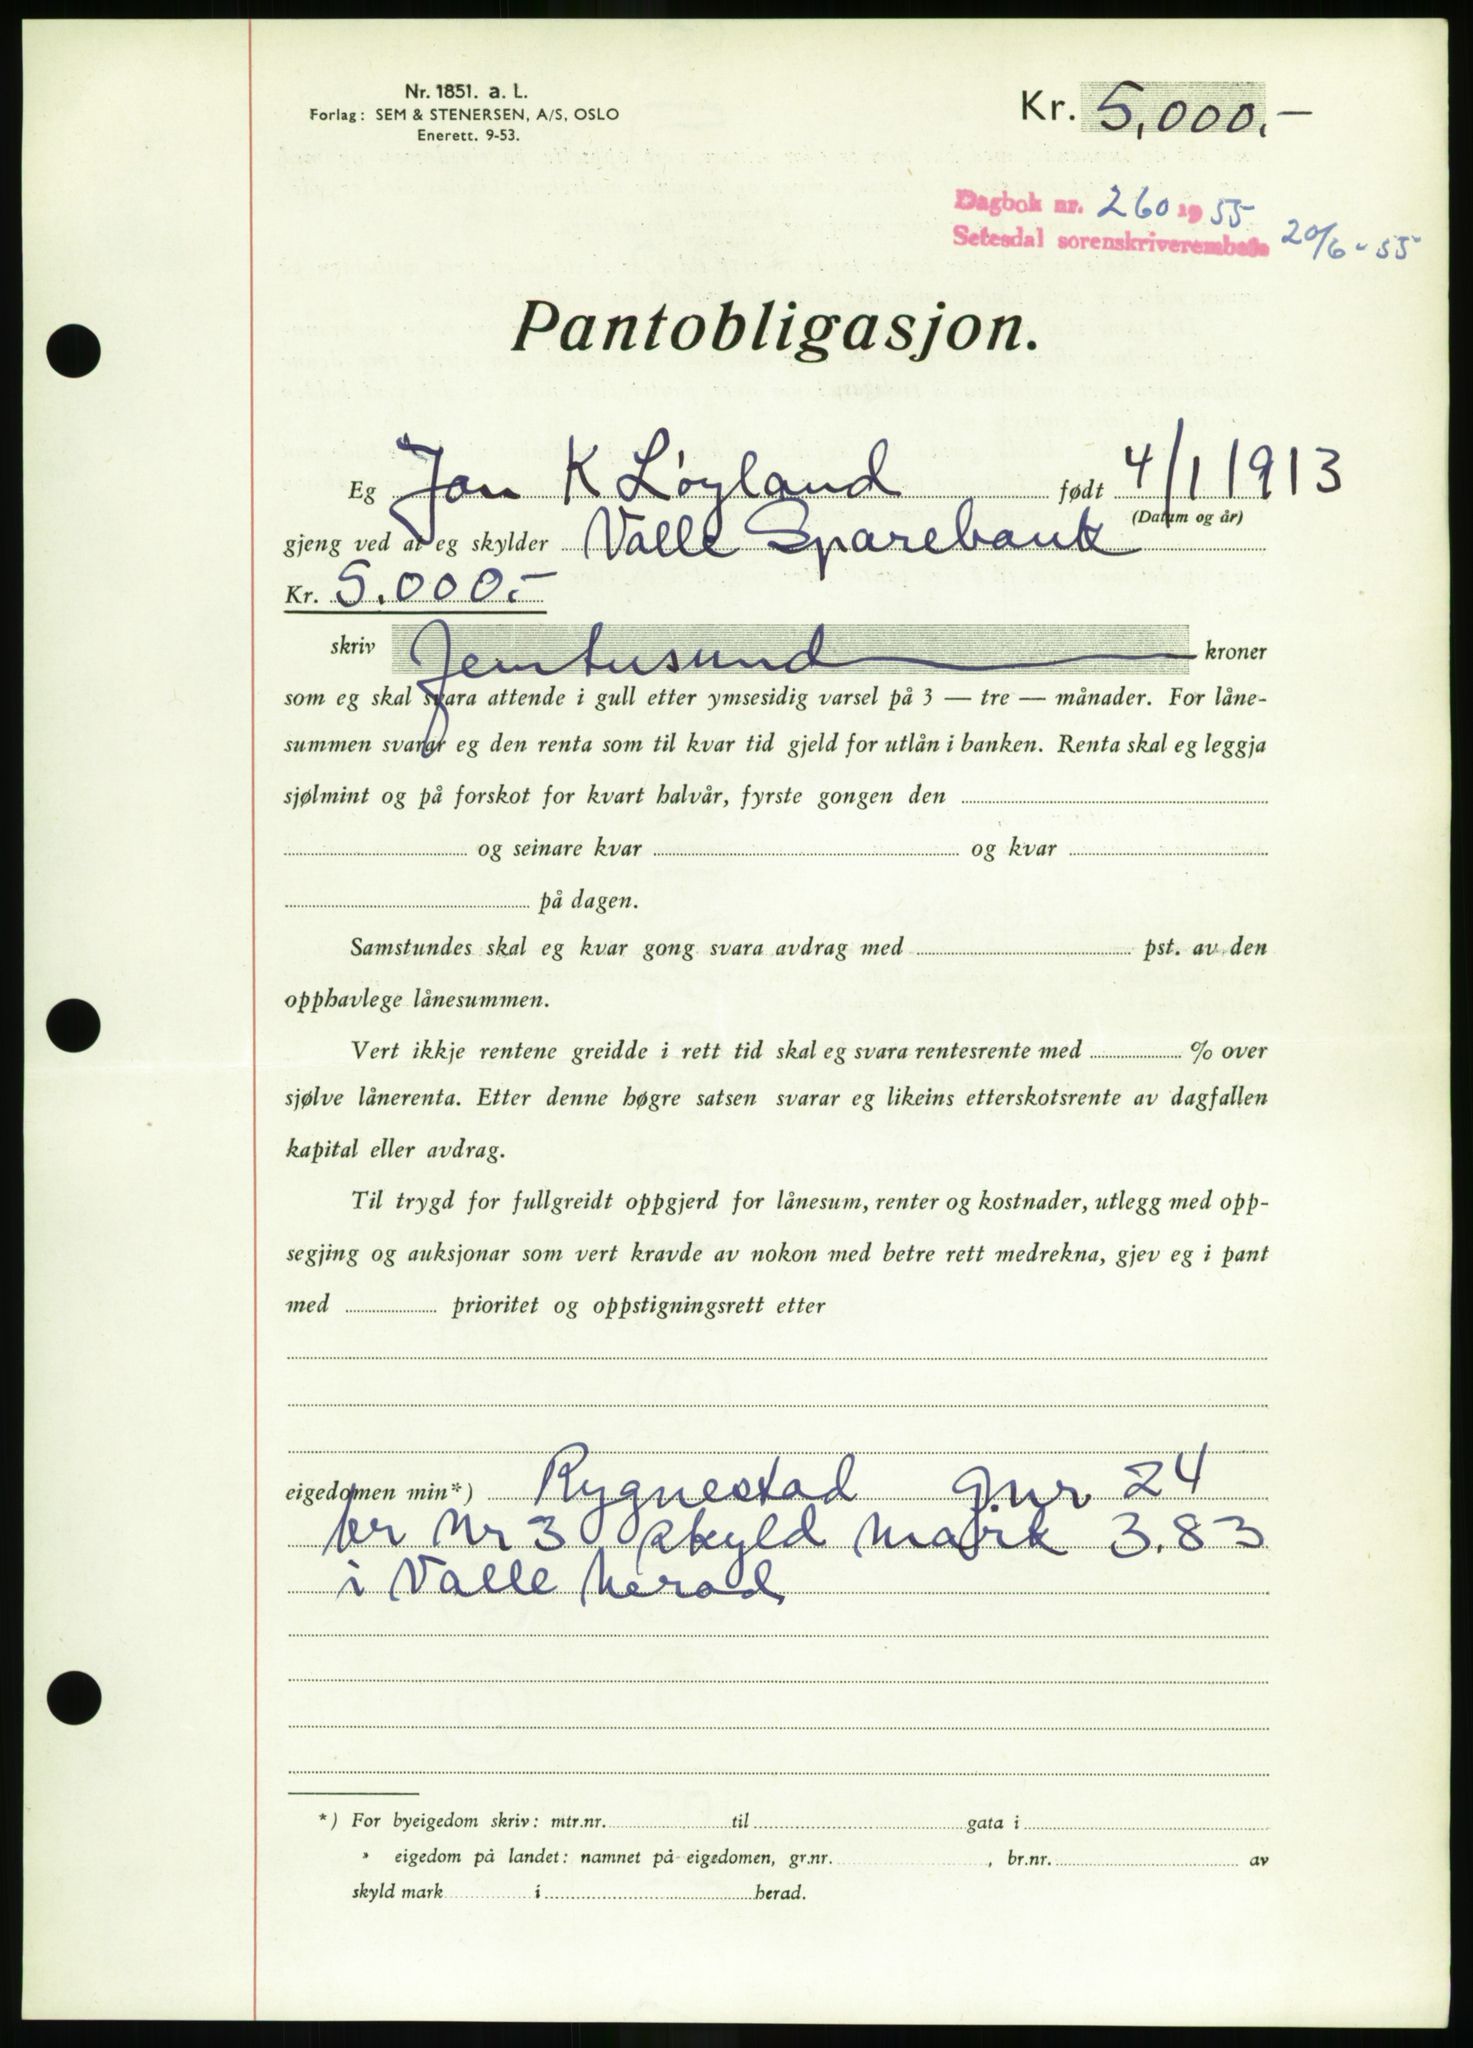 Nr. 1851. a. L.
Forlag: SEM & STENERSEN, A/S, OSLO
Enerett. 9-53.
Kr. 5,000.—
Dagbok nr. 260 19 55
Setesdal sorenskriverembede 20/6-55
Pantobligasjon.
Eg Jon K Løyland født 4/1 1913
(Datum og år)
gjeng ved at eg skylder Valle Sparebank
Kr. 5.000.-
skriv femtusund kroner
som eg skal svara attende i gull etter ymsesidig varsel på 3 — tre — månader. For låne-
summen svarar eg den renta som til kvar tid gjeld for utlån i banken. Renta skal eg leggja
sjølmint og på forskot for kvart halvår, fyrste gongen den
og seinare kvar og kvar
på dagen.
Samstundes skal eg kvar gong svara avdrag med pst. av den
opphavlege lånesummen.
Vert ikkje rentene greidde i rett tid skal eg svara rentesrente med % over
sjølve lånerenta. Etter denne høgre satsen svarar eg likeins etterskotsrente av dagfallen
kapital eller avdrag.
Til trygd for fullgreidt oppgjerd for lånesum, renter og kostnader, utlegg med opp-
segjing og auksjonar som vert kravde av nokon med betre rett medrekna, gjev eg i pant
med prioritet og oppstigningsrett etter
eigedomen min*) Rygnestad gnr 24
br nr 3 skyld mark 3.83
i Valle herad
*) For byeigedom skriv: mtr.nr. til gata i
" eigedom på landet: namnet på eigedomen, gr.nr. , br.nr. av
skyld mark i herad.